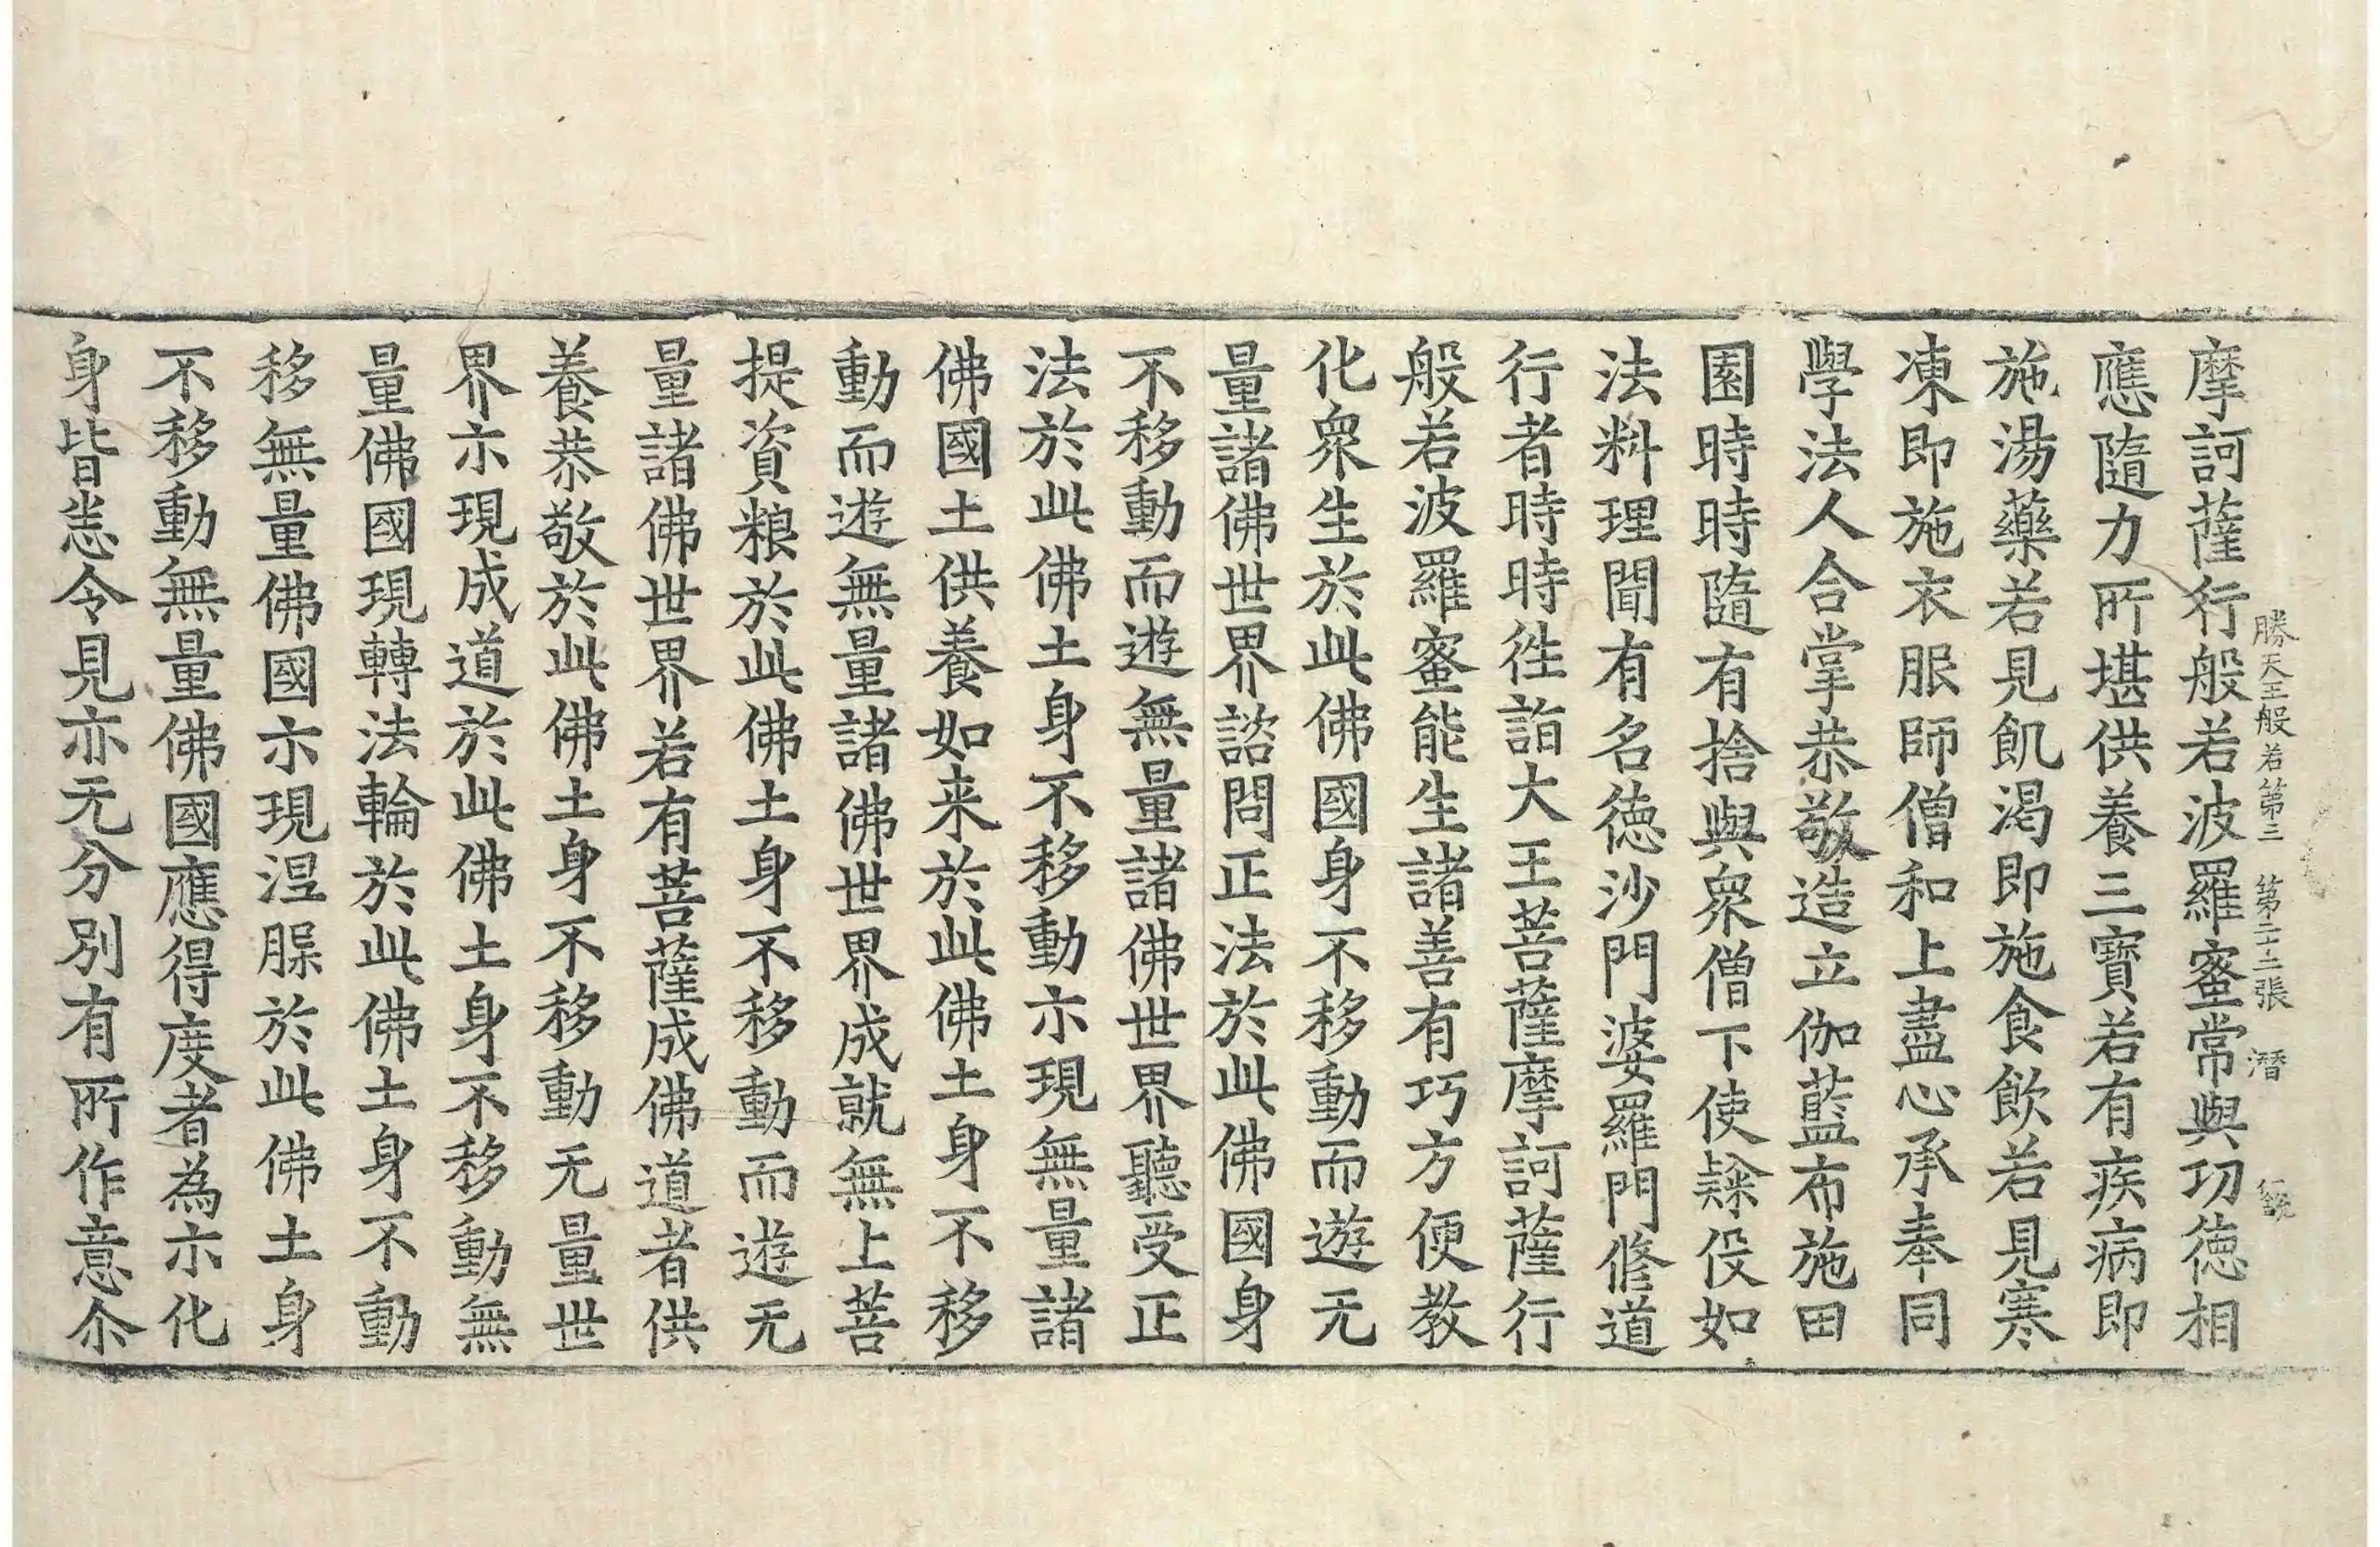 勝天王般若第三　第二十二張　潛
摩訶薩行般若波羅蜜常與功徳相
應隨力所堪供養三寶若有疾病即
施湯藥若見飢渴即施食飲若見寒
凍即施衣服師僧和上盡心承奉同
學法人合掌恭敬造立伽藍布施田
園時時隨有捨與衆僧下使𨽻伇如
法料理聞有名徳沙門婆羅門修道
行者時時徃詣大王菩薩摩訶薩行
般若波羅蜜能生諸善有巧方便教
化衆生於此佛國身不移動而遊无
量諸佛世界諮問正法於此佛國身
不移動而遊無量諸佛世界聽受正
法於此佛土身不移動示現無量諸
佛國土供養如来於此佛土身不移
動而遊無量諸佛世界成就無上菩
提資粮於此佛土身不移動而遊无
量諸佛世界若有菩薩成佛道者供
養恭敬於此佛土身不移動无量世
界示現成道於此佛土身不移動無
量佛國現轉法輪於此佛土身不動
移無量佛國示現涅䏶於此佛土身
不移動無量佛國應得度者為示化
身皆悉令見亦无分別有所作意尒